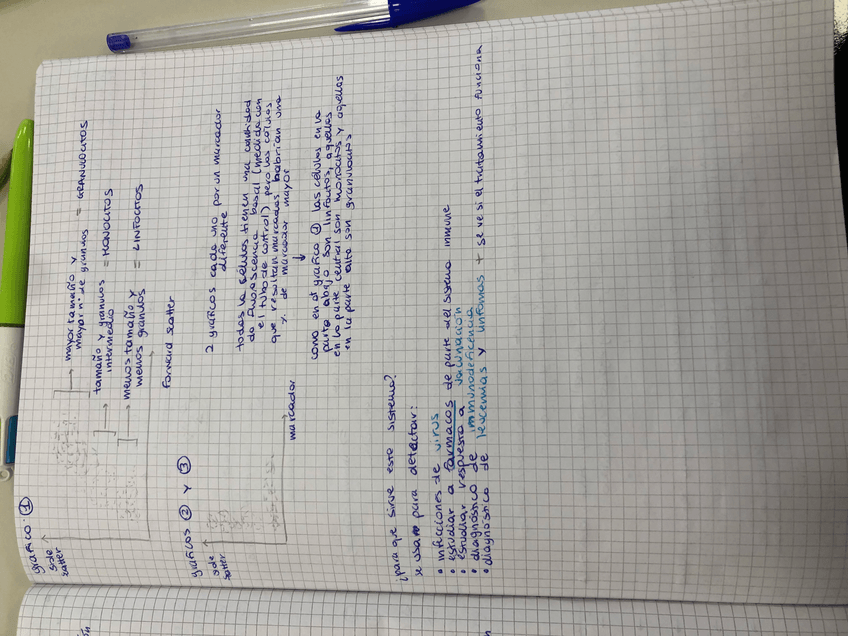 gráfico: ①
side
scatter
mayor tamaño y
mayor nº de granulos = GRANULOCITOS
tamaño y granulos = MONOCITOS
intermedio
menos tamaño y
menos granulos = LINFOCITOS
Forward scatter
gráficos ② y ③
side
scatter
marcador
2 gráficos cada uno por un marcador
diferente
todas la células tienen una cantidad
de fluorescencia basal (medida con
el tubo de control), pero las células
que resultan marcadas habrían una
% de marcador mayor
como en el grafico ① las células en la
parte abajo son linfocitos, aquellas
en la parte central son monocitos y aquellas
en la parte alta son granulocitos
¿para que sirve este sistema?
se usan para detectar:
• infecciones de virus
• estudiar a fármacos de parte del sistema inmune
• estudiar respuesta a vacunación
• diagnóstico de immunodeficencia
• diagnóstico de leucemias y linfomas + se ve si el tratamiento funciona